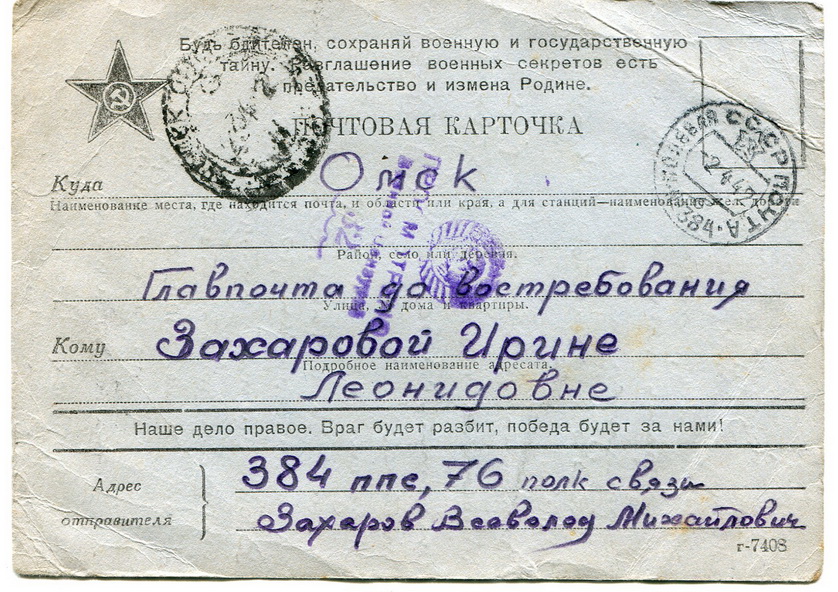 Будь бдителен, сохраняй военную и государственную
тайну. Разглашение военных секретов есть
предательство и измена Родине.
ПОЧТОВАЯ КАРТОЧКА
Куда Омск
Наименование места, где находится почта, и области или края, а для станций—наименование жел. дороги
Район, село или деревня.
Главпочта до востребования
Улица, № дома и квартиры.
Кому Захаровой Ирине
Подробное наименование адресата.
Леонидовне
Наше дело правое. Враг будет разбит, победа будет за нами!
Адрес отправителя
384 ппс, 76 полк связи
Захаров Всеволод Михайлович
г-7408
СССР
ПОЛЕВАЯ ПОЧТА
384
2 4 42